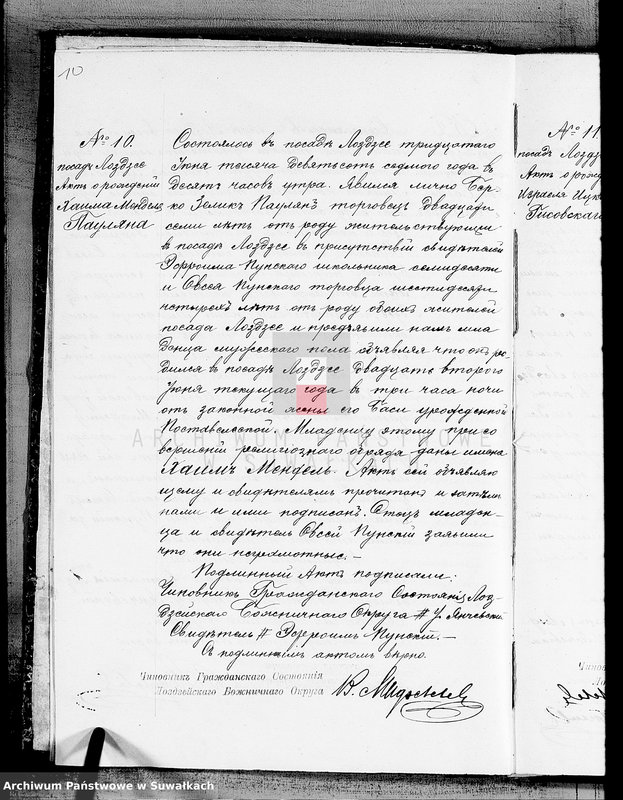 10
№ 10.
посадъ Лоздзее
Актъ о рожденіи
Хаима Мендель
Пауляна
Состоялось въ посадѣ Лоздзее тридцатаго
Іюня тысяча девятьсотъ седмого года въ
десять часовъ утра. Явился лично Бер-
ко Зеликъ Паулянъ торговецъ двадцати
семи лѣтъ отъ роду жительствующій
въ посадѣ Лоздзее въ присутствіи свидѣтелей
Эфроима Пунскаго школьника семидесяти
и Овсея Пунскаго торговца шестидесяти
четырехъ лѣтъ отъ роду обоихъ жителей
посада Лоздзее и предъявилъ намъ мла
денца мужескаго пола объявляя что онъ ро
дился въ посадѣ Лоздзее двадцать второго
Іюня текущаго года въ три часа ночи
отъ законной жены его Баси урожденной
Младенцу этому при со
вершеніи религіознаго обряда даны имена
Хаимъ Мендель. Актъ сей объявляю
щему и свидѣтелямъ прочитанъ и затѣмъ
нами и ими подписанъ. Отецъ младен-
ца и свидѣтель Овсей Пунскій заявили
что они неграмотные.—
Подлинный Актъ подписали:
Чиновникъ Гражданскаго Состоянія Лоз-
дзейскаго Божничнаго Округа # У. Янчевскій
Свидѣтель # Эфроимъ Пунскій.—
Съ подлиннымъ актомъ вѣрно.
Чиновникъ Гражданскаго Состоянія
Лоздзейскаго Божничнаго Округа
№ 11
посадъ Лоздз
Актъ о рожд
Израеля Ицк
Чинов
Ло
ARCHIWUM PAŃSTWOWE
Archiwum Państwowe w Suwałkach